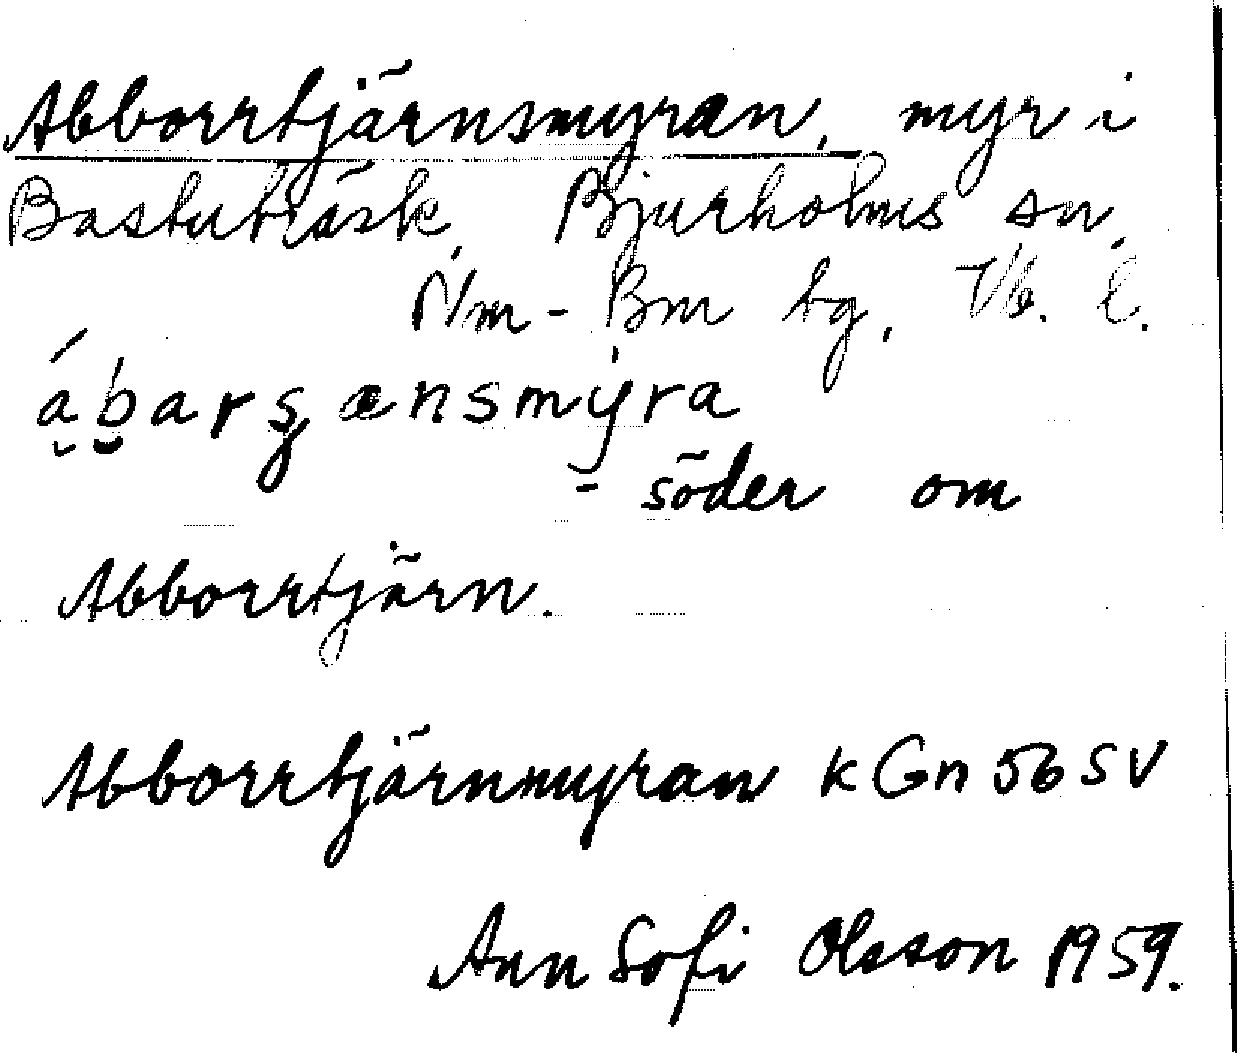 Abborrtjärnsmyran, myr i
Bastuträsk, Bjurholms sn,
Nm - Bm tg, Vb. l.
söder om
Abborrtjärn.
Abborrtjärnmyran k Gn 56 SV
Ann Sofi Olsson 1959.